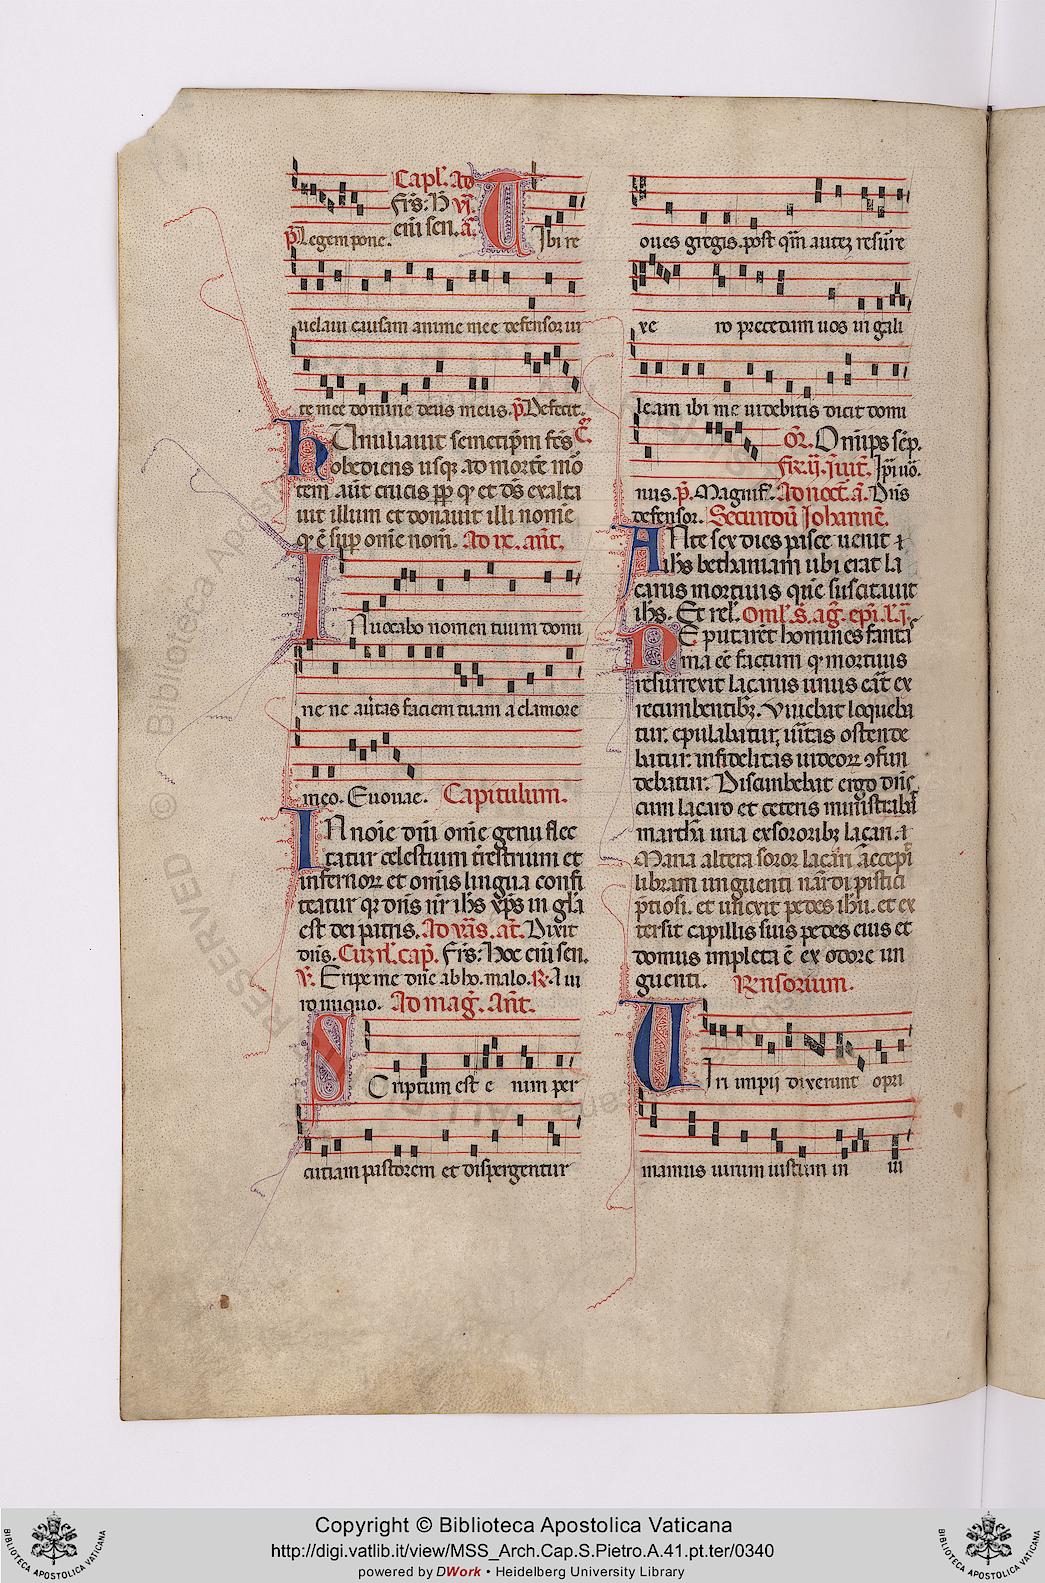 Capl'. Ad
frs: h vi.
eni sen. a.
p. Legem pone.
Tibi re
uelaui causam anime mee defensor ui
te mee domine deus meus. p. Defecit.
hUmiliauit semetipm fcs
obediens usq; ad morte mo
tem aut crucis pp qd et ds exalta
uit illum et donauit illi nome
qd e sup ome nom. Ad ix. ant.
INuocabo nomen tuum domi
ne ne auertas faciem tuam a clamore
meo. Euouae. Capitulum.
IN noie dni omne genu flec
tatur celestium trestrium et
infernorz et omis lingua confi
teatur qr dns nr ihs xps in gla
est dei patris. Ad vas. at. Dixit
dns. cap. frs: hoc eni sen.
V. Eripe me dne ab ho. malo. R. A ui
ro iniquo. Ad mag. ant.
SCriptum est e nim per
cutiam pastorem et dispergentur
oues gregis. post qm autez resure
xe ro precedam uos in gali
leam ibi me uidebitis dicit domi
or. Omips sep.
fr. ij.
nus. p. Magnif. Ad noct. a. Dns
defensor. Secundu Iohanne.
ANte sex dies pasce uenit
ihs bethaniam ubi erat la
carus mortuus que suscitauit
ihs. Et rel. Oml. s. ag. epi. l. j.
NE putaret homines fanta
ma ee factum qd mortuus
resurrexit lacarus unus erat ex
recumbentibz. Viuebat loqueba
tur. epulabatur; uitas ostende
batur. infidelitas iudeorz confun
debatur. Discumbebat ergo dns
cum lacaro et ceteris ministraba
martha una ex sororibz lacari.
Maria altera soror lacari accepit
libram unguenti nardi pistici
ptiosi. et unexit pedes ihu. et ex
tersit capillis suis pedes eius et
domus impleta e ex odore un
guenti. Rnsorium.
UIri impij dixerunt opri
mamus uirum iustum in iu
Copyright © Biblioteca Apostolica Vaticana
http://digi.vatlib.it/view/MSS_Arch.Cap.S.Pietro.A.41.pt.ter/0340
powered by DWork • Heidelberg University Library
BIBLIOTECA APOSTOLICA VATICANA
BIBLIOTECA APOSTOLICA VATICANA